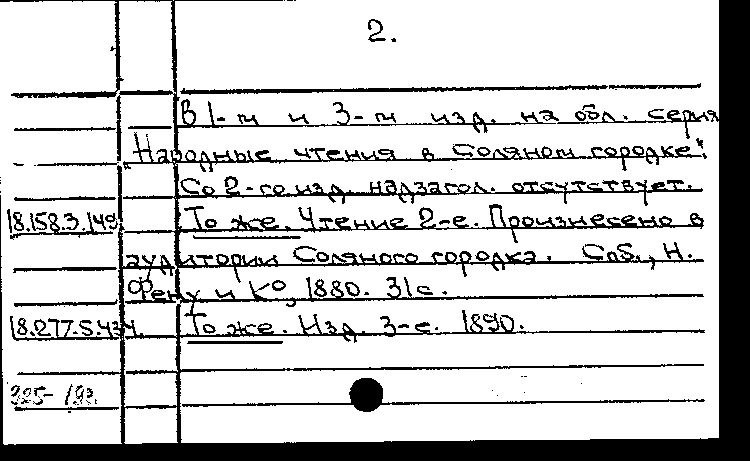 2.
В 1-м и 3-м изд. на обл. серия
„Народные чтения в Соляном городке".
Со 2-го изд. надзагол. отсутствует.
18.158.3.149 То же. Чтение 2-е. Произнесено в
аудитории Соляного городка. Спб., Н.
Фену и К⁰, 1880. 31 с.
18.277.5.434. То же. Изд. 3-е. 1890.